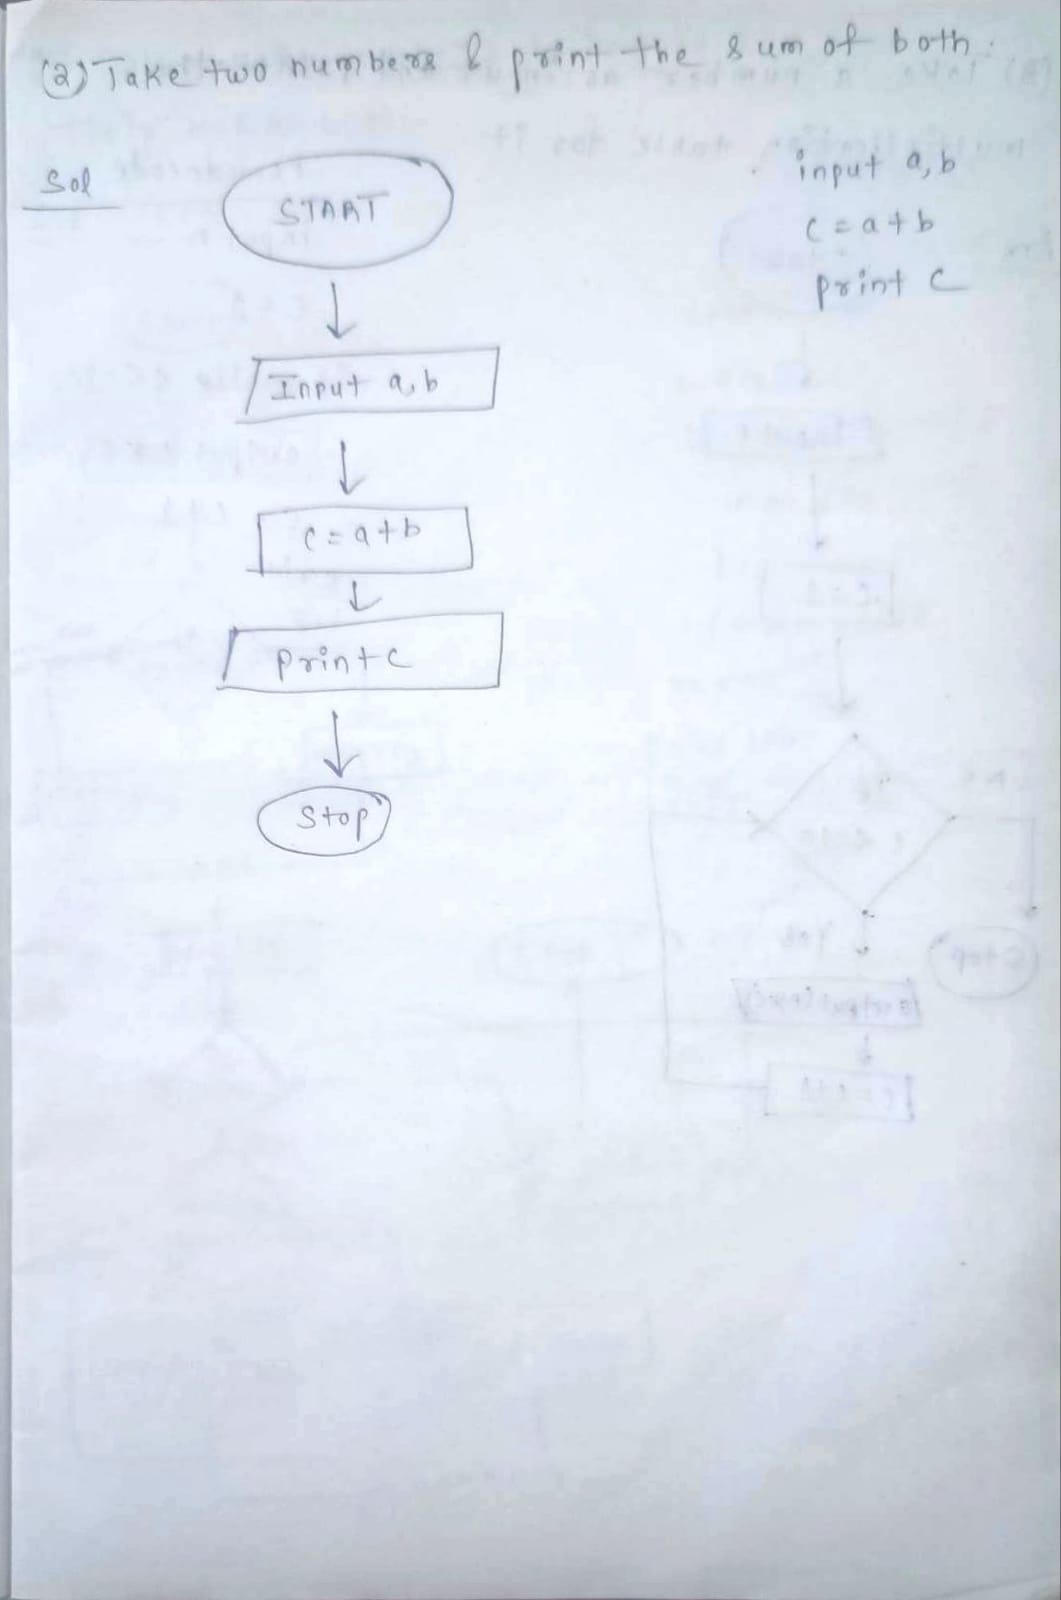 (2) Take two numbers & print the sum of both.
Sol
START
Input a, b
c = a + b
print c
Stop
input a, b
c = a + b
print c